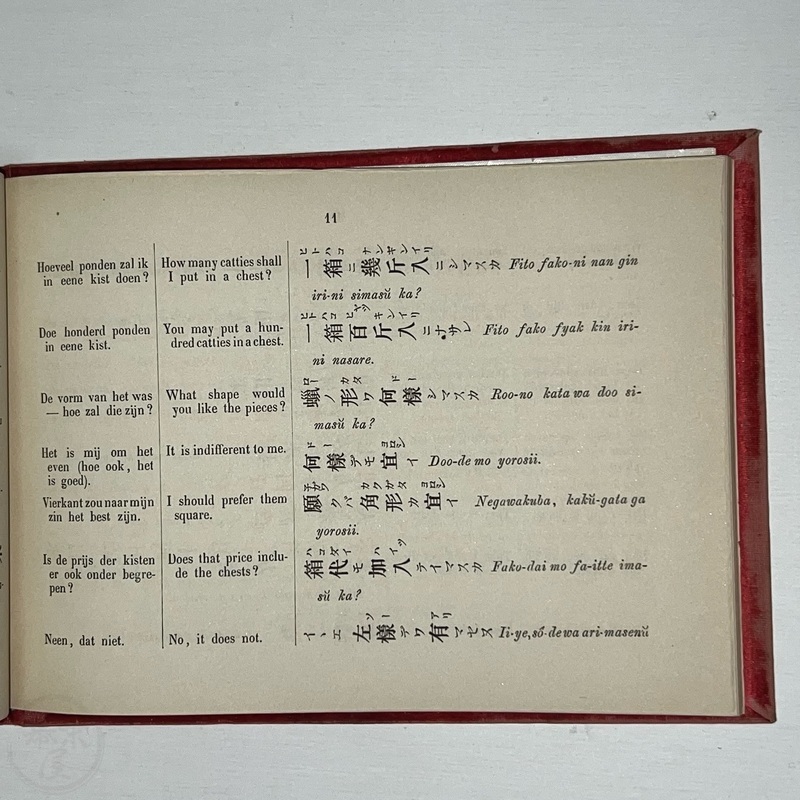 11
Hoeveel ponden zal ik
in eene kist doen?
How many catties shall
I put in a chest?
ヒトハコ ナンギンイリ
一箱ニ幾斤入ニシマスカ Fito fako-ni nan gin
iri-ni simasŭ ka?
Doe honderd ponden
in eene kist.
You may put a hun-
dred catties in a chest.
ヒトハコ ヒヤツキンイリ
一箱百斤入ニナサレ Fito fako fyak kin iri-
ni nasare.
De vorm van het was
— hoe zal die zijn?
What shape would
you like the pieces?
ロー カタ ドー
蠟ノ形ワ何樣シマスカ Roo-no kata wa doo si-
masŭ ka?
Het is mij om het
even (hoe ook, het
is goed).
It is indifferent to me.
ドー ヨロシ
何樣デモ宜イ Doo-de mo yorosii.
Vierkant zou naar mijn
zin het best zijn.
I should prefer them
square.
ネガワ カクガタ ヨロシ
願クバ角形カ宜イ Negawakuba, kakŭ-gata ga
yorosii.
Is de prijs der kisten
er ook onder begre-
pen?
Does that price inclu-
de the chests?
ハコダイ ハイツ
箱代モ加入テイマスカ Fako-dai mo fa-itte ima-
sŭ ka?
Neen, dat niet.
No, it does not.
ソー アリ
イヽエ左樣デワ有マセヌ Ii-ye, sō-de wa ari-masenŭ